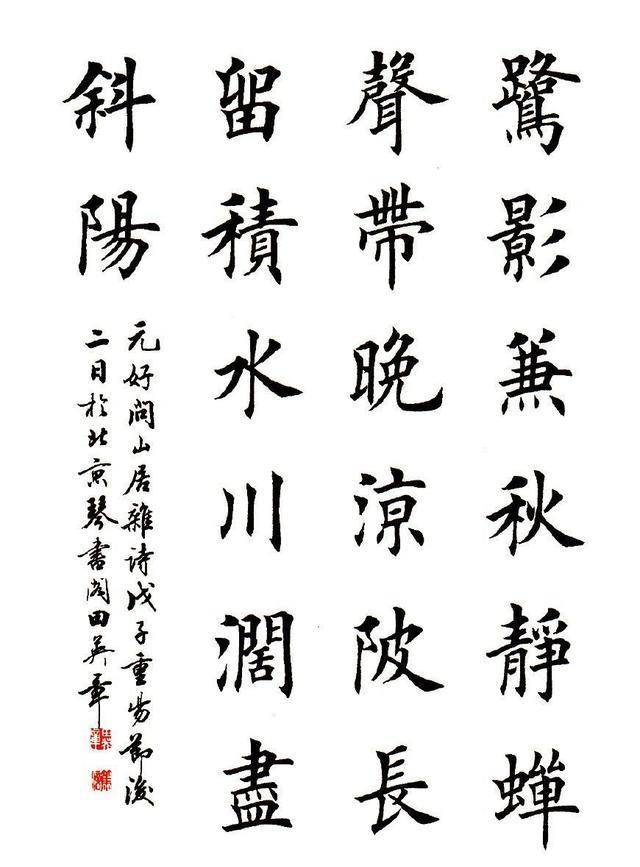 鷺影兼秋靜蟬
聲帶晚涼陂長
留積水川濶盡
斜陽
元好問山居雜诗戊子重陽節後
二日於北京琴書閣田英章